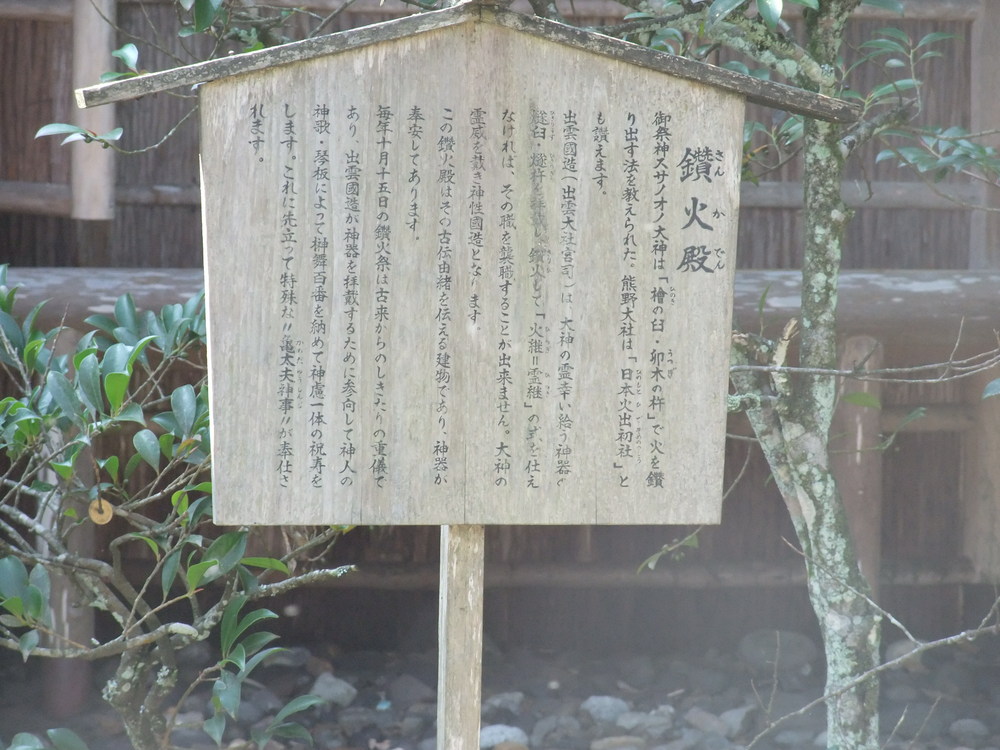 鑽火殿
さんかでん
御祭神スサノオノ大神は「檜の臼・卯木の杵」で火を鑽
り出す法を教えられた。熊野大社は「日本火出初社」と
も讃えます。
出雲國造（出雲大社宮司）は、大神の霊幸い給う神器
燧臼・燧杵を拝戴し、鑽火して「火継＝霊継」の式を仕え
なければ、その職を襲職することが出来ません。大神の
霊威を戴き神性國造となります。
この鑽火殿はその古伝由緒を伝える建物であり、神器が
奉安してあります。
毎年十月十五日の鑽火祭は古来からのしきたりの重儀で
あり、出雲國造が神器を拝戴するために参向して神人の
神歌・琴板によって榊舞百番を納めて神慮一体の祝寿を
します。これに先立って特殊な〃亀太夫神事〃が奉仕さ
れます。